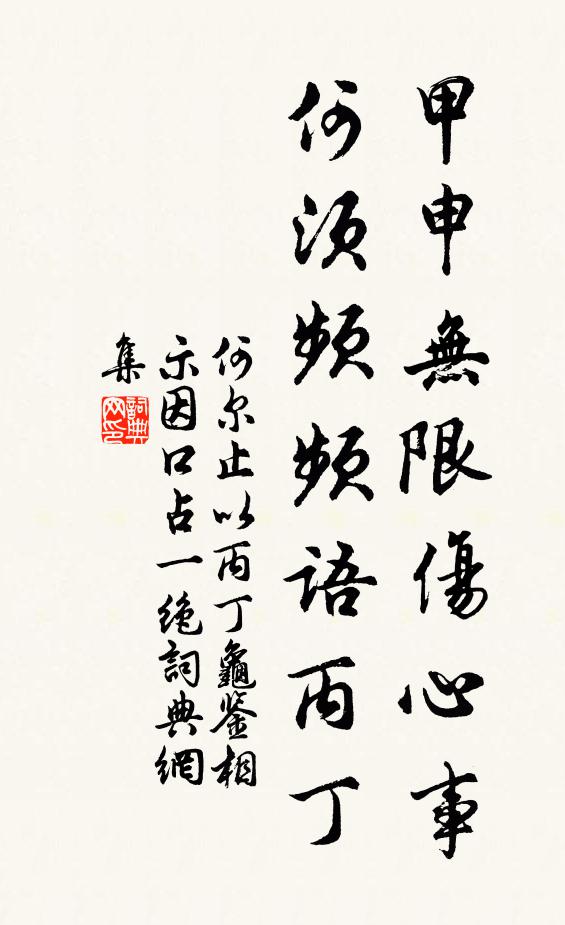 甲申無限傷心事
何須頻頻語丙丁
何尔止以丙丁龜鉴相
示因口占一绝詞典網
集
詞典
网印